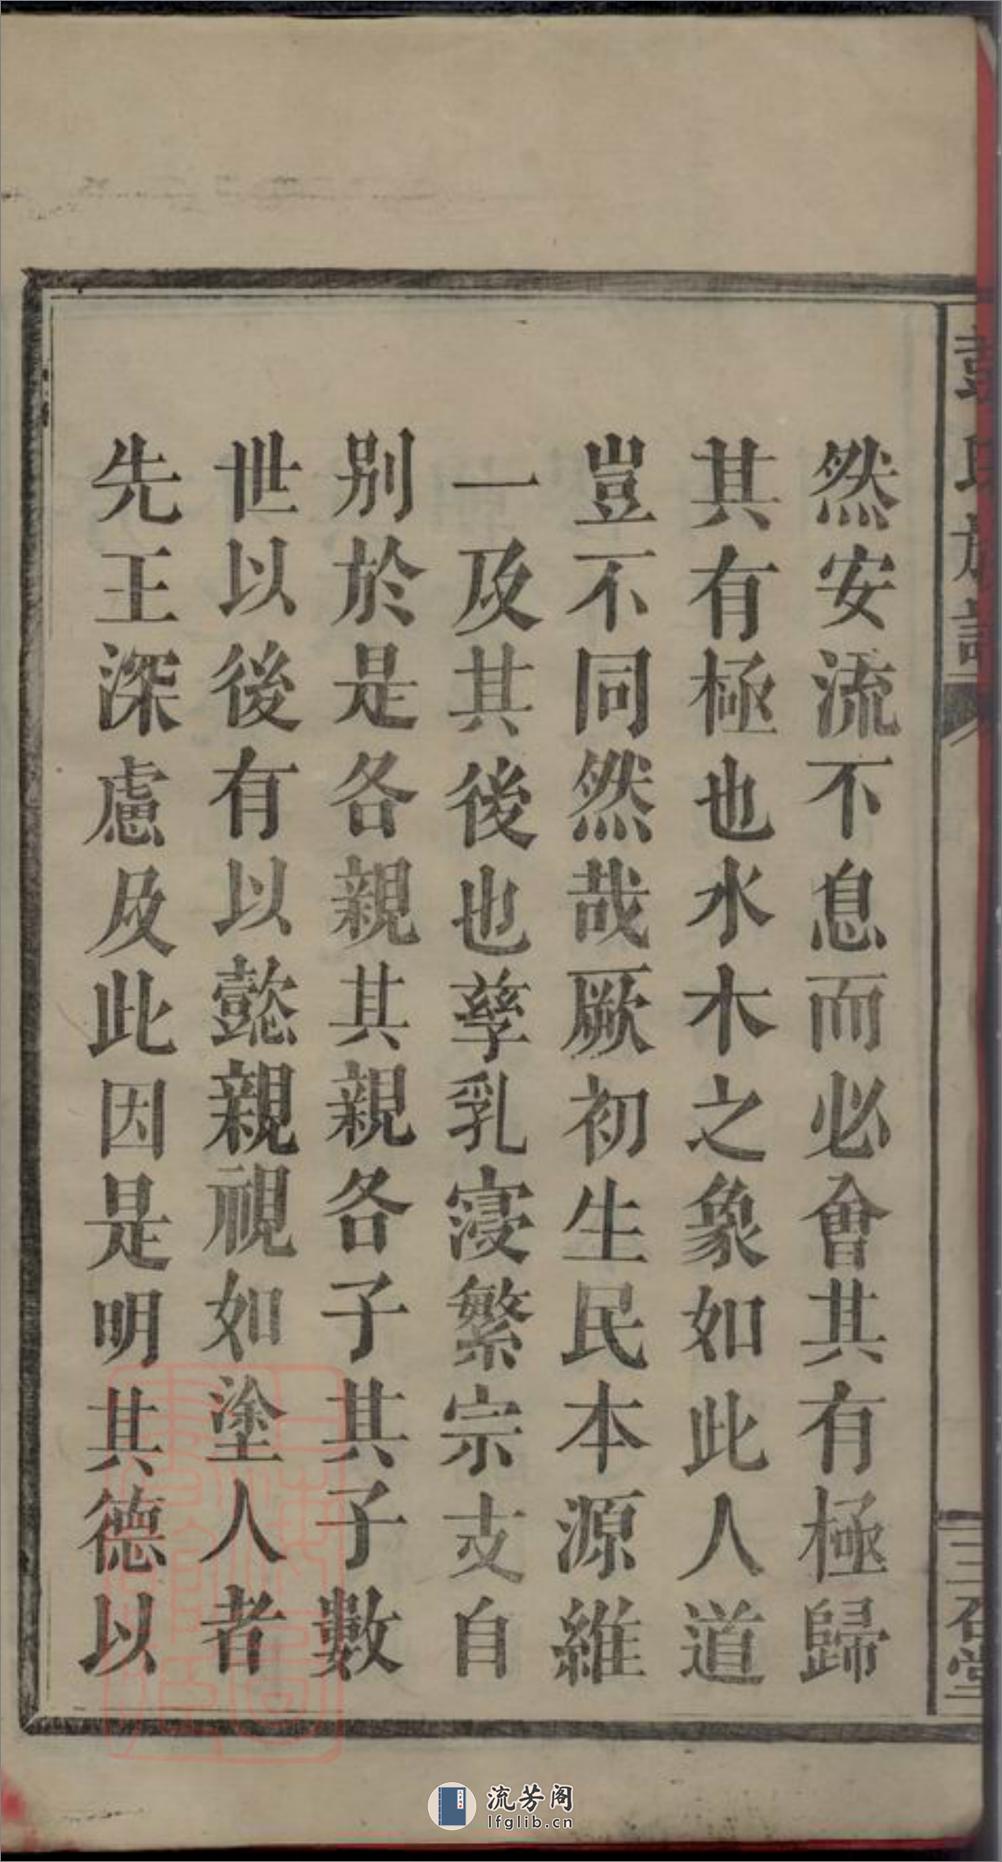 然安流不息而必會其有極歸
其有極也水木之象如此人道
豈不同然哉厥初生民本源維
一及其後也孳乳寖繁宗支自
别於是各親其親各子其子數
世以後有以懿親視如塗人者
先王深慮及此因是明其德以
流芳阁
lfglib.cn